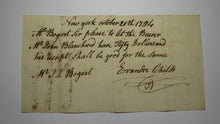 New york october 20th 1794
Mr Bogert Sir please to let the Bearer
Mr John Blanchard have Fifty Dollars and
his receipt Shall be good for the same
Mr J L Bogert
Evander Childs